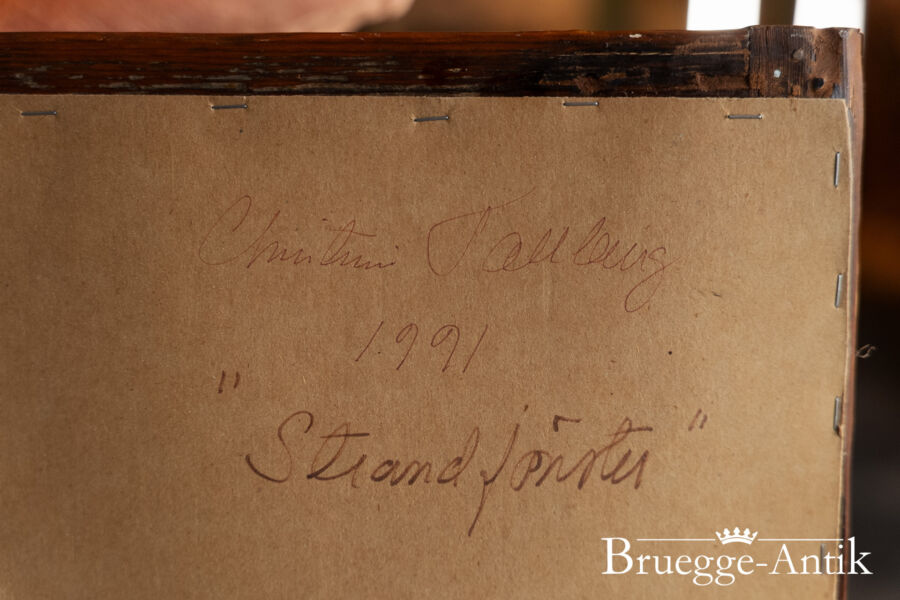 Christina Tallberg
1991
"Strandfönster"
Bruegge-Antik